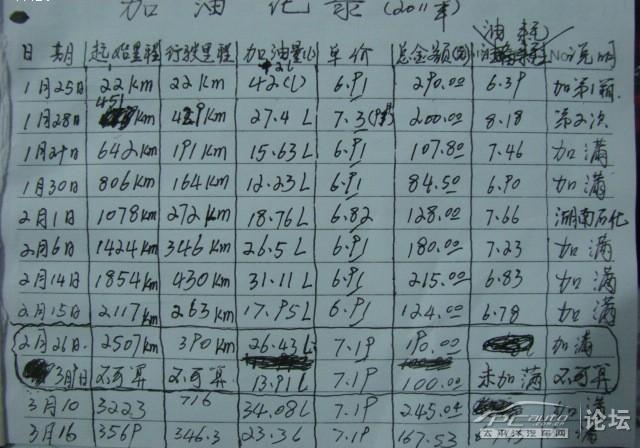 加油记录(2011年
日期 起始里程 行驶里程 加油量(L) 单价 总金额(元) 油耗 说明
1月25日 22km 22km 42(L) 6.91 290.00 6.39 加第1箱
1月28日 451km 429km 27.4L 7.3 200.00 8.18 第2次
1月29日 642km 191km 15.63L 6.91 107.80 7.46 加满
1月30日 806km 164km 12.23L 6.91 84.50 6.90 加满
2月1日 1078km 272km 18.76L 6.82 128.00 7.66 湖南石化
2月6日 1424km 346km 26.5L 6.91 180.00 7.23 加满
2月14日 1854km 430km 31.11L 6.91 215.00 6.83 加满
2月15日 2117km 263km 17.95L 6.91 124.00 6.78 加满
2月26日 2507km 390km 26.43L 7.19 190.00 加满
3月1日 不可算 不可算 13.91L 7.19 100.00 未加满 不可算
3月10 3223 716 34.08L 7.19 245.04 加满
3月16 3569 346.3 23.3 7.19 167.53 满
PCauto.com.cn 论坛
太平洋汽车网